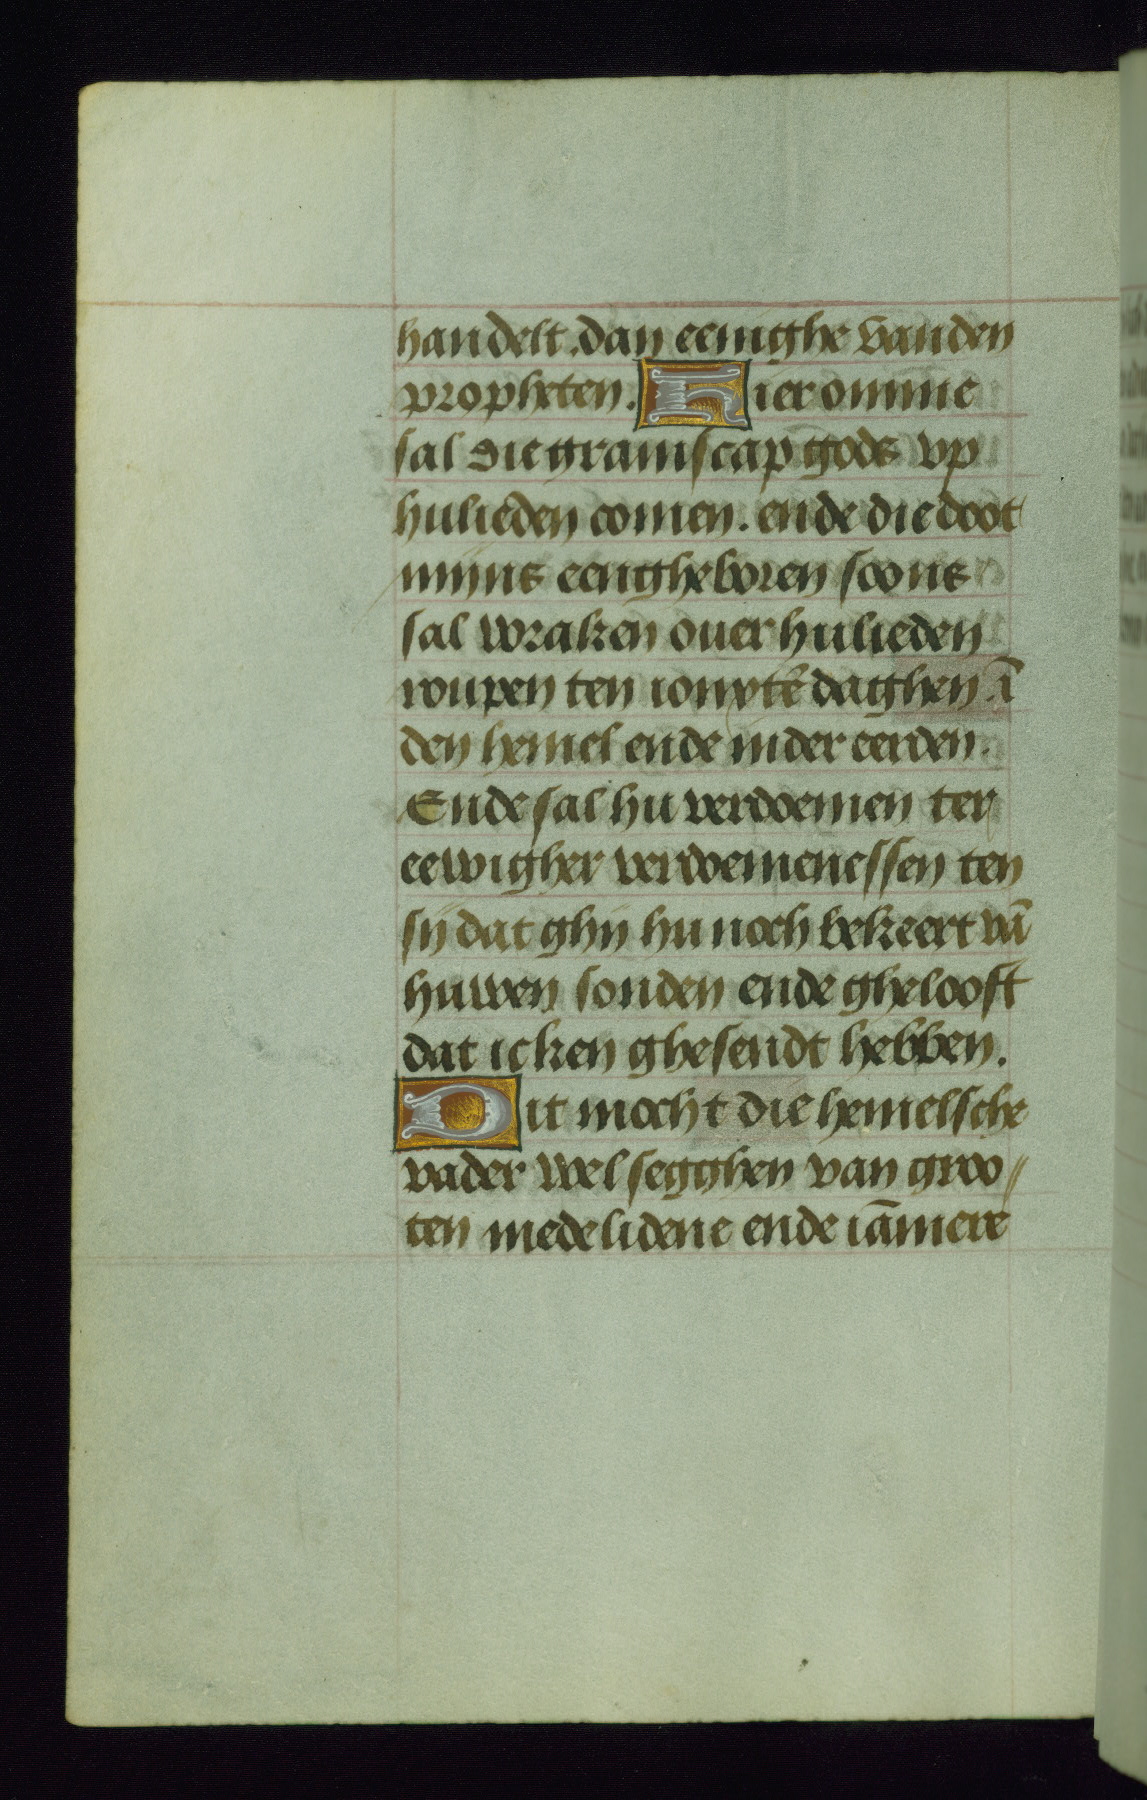 handelt.dan eenighe vanden
propheten. Hieromme
sal die gramscap gods vp
hulieden comen. ende die doot
mijns eengheboren soons
sal wraken ouer hulieden
roupen ten ioncste daghen. ī
den hemel ende inder eerden.
Ende sal hu verdoemen ter
eewigher verdoemenessen ten
sij dat ghij hu noch bekeert vā
huwen sonden ende ghelooft
dat icken ghesendt hebben.
Dit mocht die hemelsche
vader wel segghen van groo//
ten medelidene ende iāmere